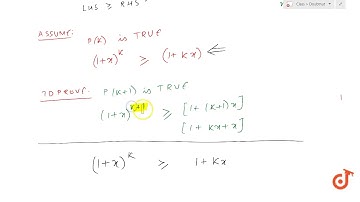 LHS ≥ RHS
ASSUME: P(k) is TRUE
(1+x)^k ≥ (1+kx)
TO PROVE: P(k+1) is TRUE
(1+x)^(k+1) ≥ [1+(k+1)x]
[1+kx+x]
(1+x)^k ≥ 1+kx